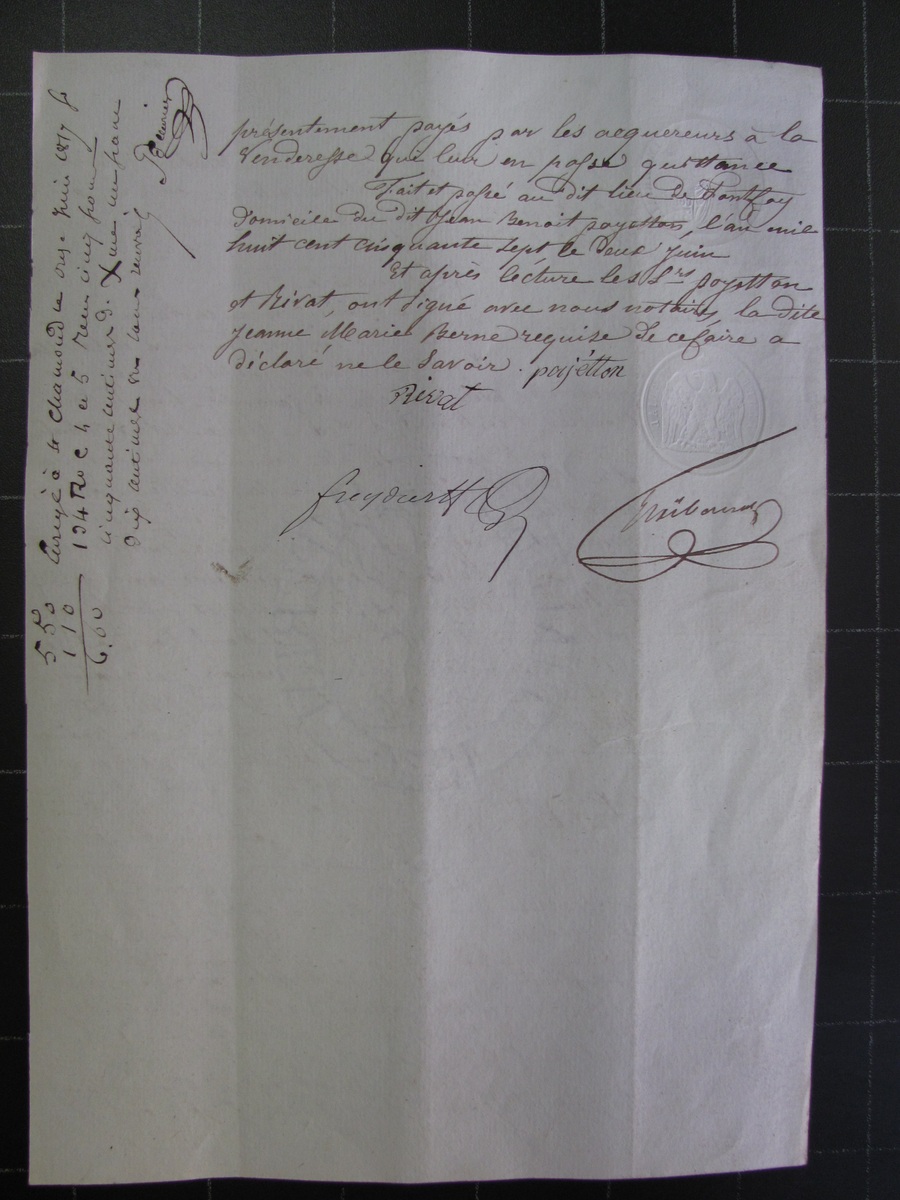 présentement payés par les acquereurs à la
Venderesse que leur en passe quittance
Fait et passé au dit lieu de Fontfay
Domicile du dit Jean Benoit poyetton, l'an mil
huit cent cinquante Sept le deux Juin
Et après lécture les Srs poyetton
et Rivat, ont signé avec nous notaires, la dite
Jeanne Marie Berne requise de ce faire a
déclaré ne le Savoir . pojétton
Rivat
Enregé à St Chamond le onze Juin 1857 fo
134 Ro C 4 et 5 reçu cinq francs
cinquante centimes d. X me un franc
dix centimes sans renvoi
5 50
1 10
6.60